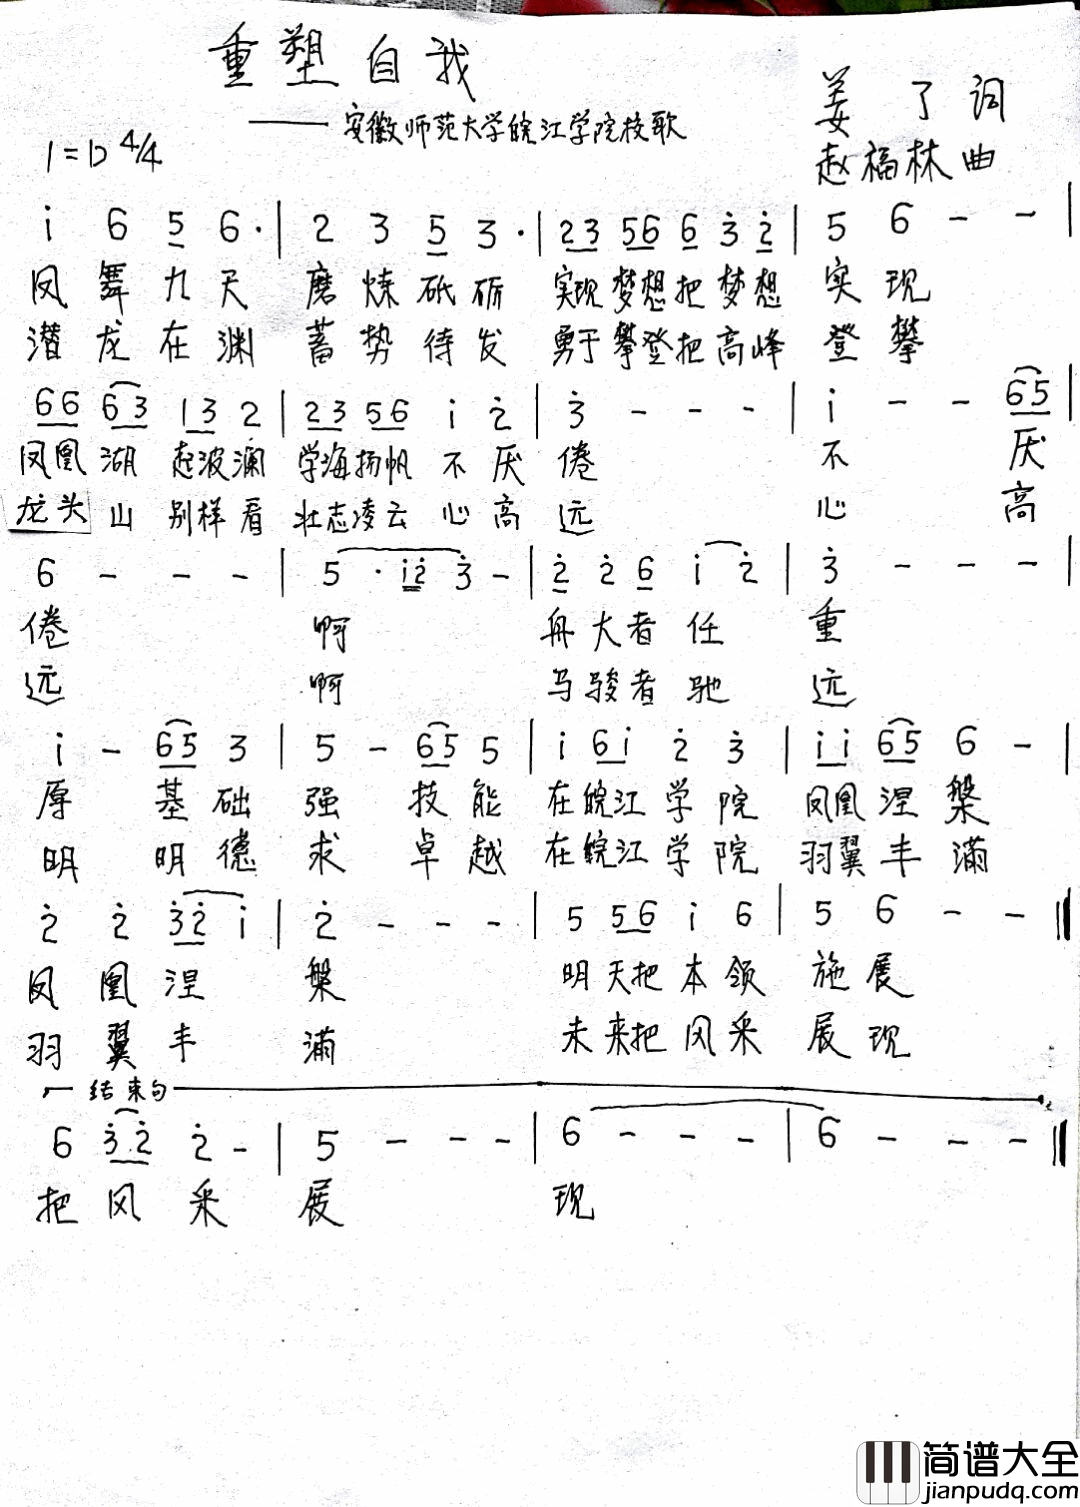 重塑自我
——安徽师范大学皖江学院校歌
姜了词
1=D 4/4
赵福林曲
i 6 5 6· | 2 3 5 3· | 23 56 6 3 2 | 5 6 - - |
凤舞九天 磨炼砥砺 实现梦想把梦想 实现
潜龙在渊 蓄势待发 勇于攀登把高峰 登攀
66 63 13 2 | 23 56 i 2 | 3 - - - | i - - 65 |
凤凰湖起波澜 学海扬帆不厌倦 不厌
龙头山别样看 壮志凌云心高远 心高
6 - - - | 5 · i2 3 - | 2 2 6 i 2 | 3 - - - |
倦 啊 舟大者任 重
远 啊 马骏者驰 远
i - 65 3 | 5 - 65 5 | i 6i 2 3 | ii 65 6 - |
厚基础 强技能 在皖江学院 凤凰涅槃
明明德 求卓越 在皖江学院 羽翼丰满
2 2 32 i | 2 - - - | 5 56 i 6 | 5 6 - - ‖
凤凰涅 槃 明天把本领 施展
羽翼丰 满 未来把风采 展现
结束句
6 3·2 2 - | 5 - - - | 6 - - - | 6 - - - ‖
把风采 展 现
简谱大全
jianpudq.com